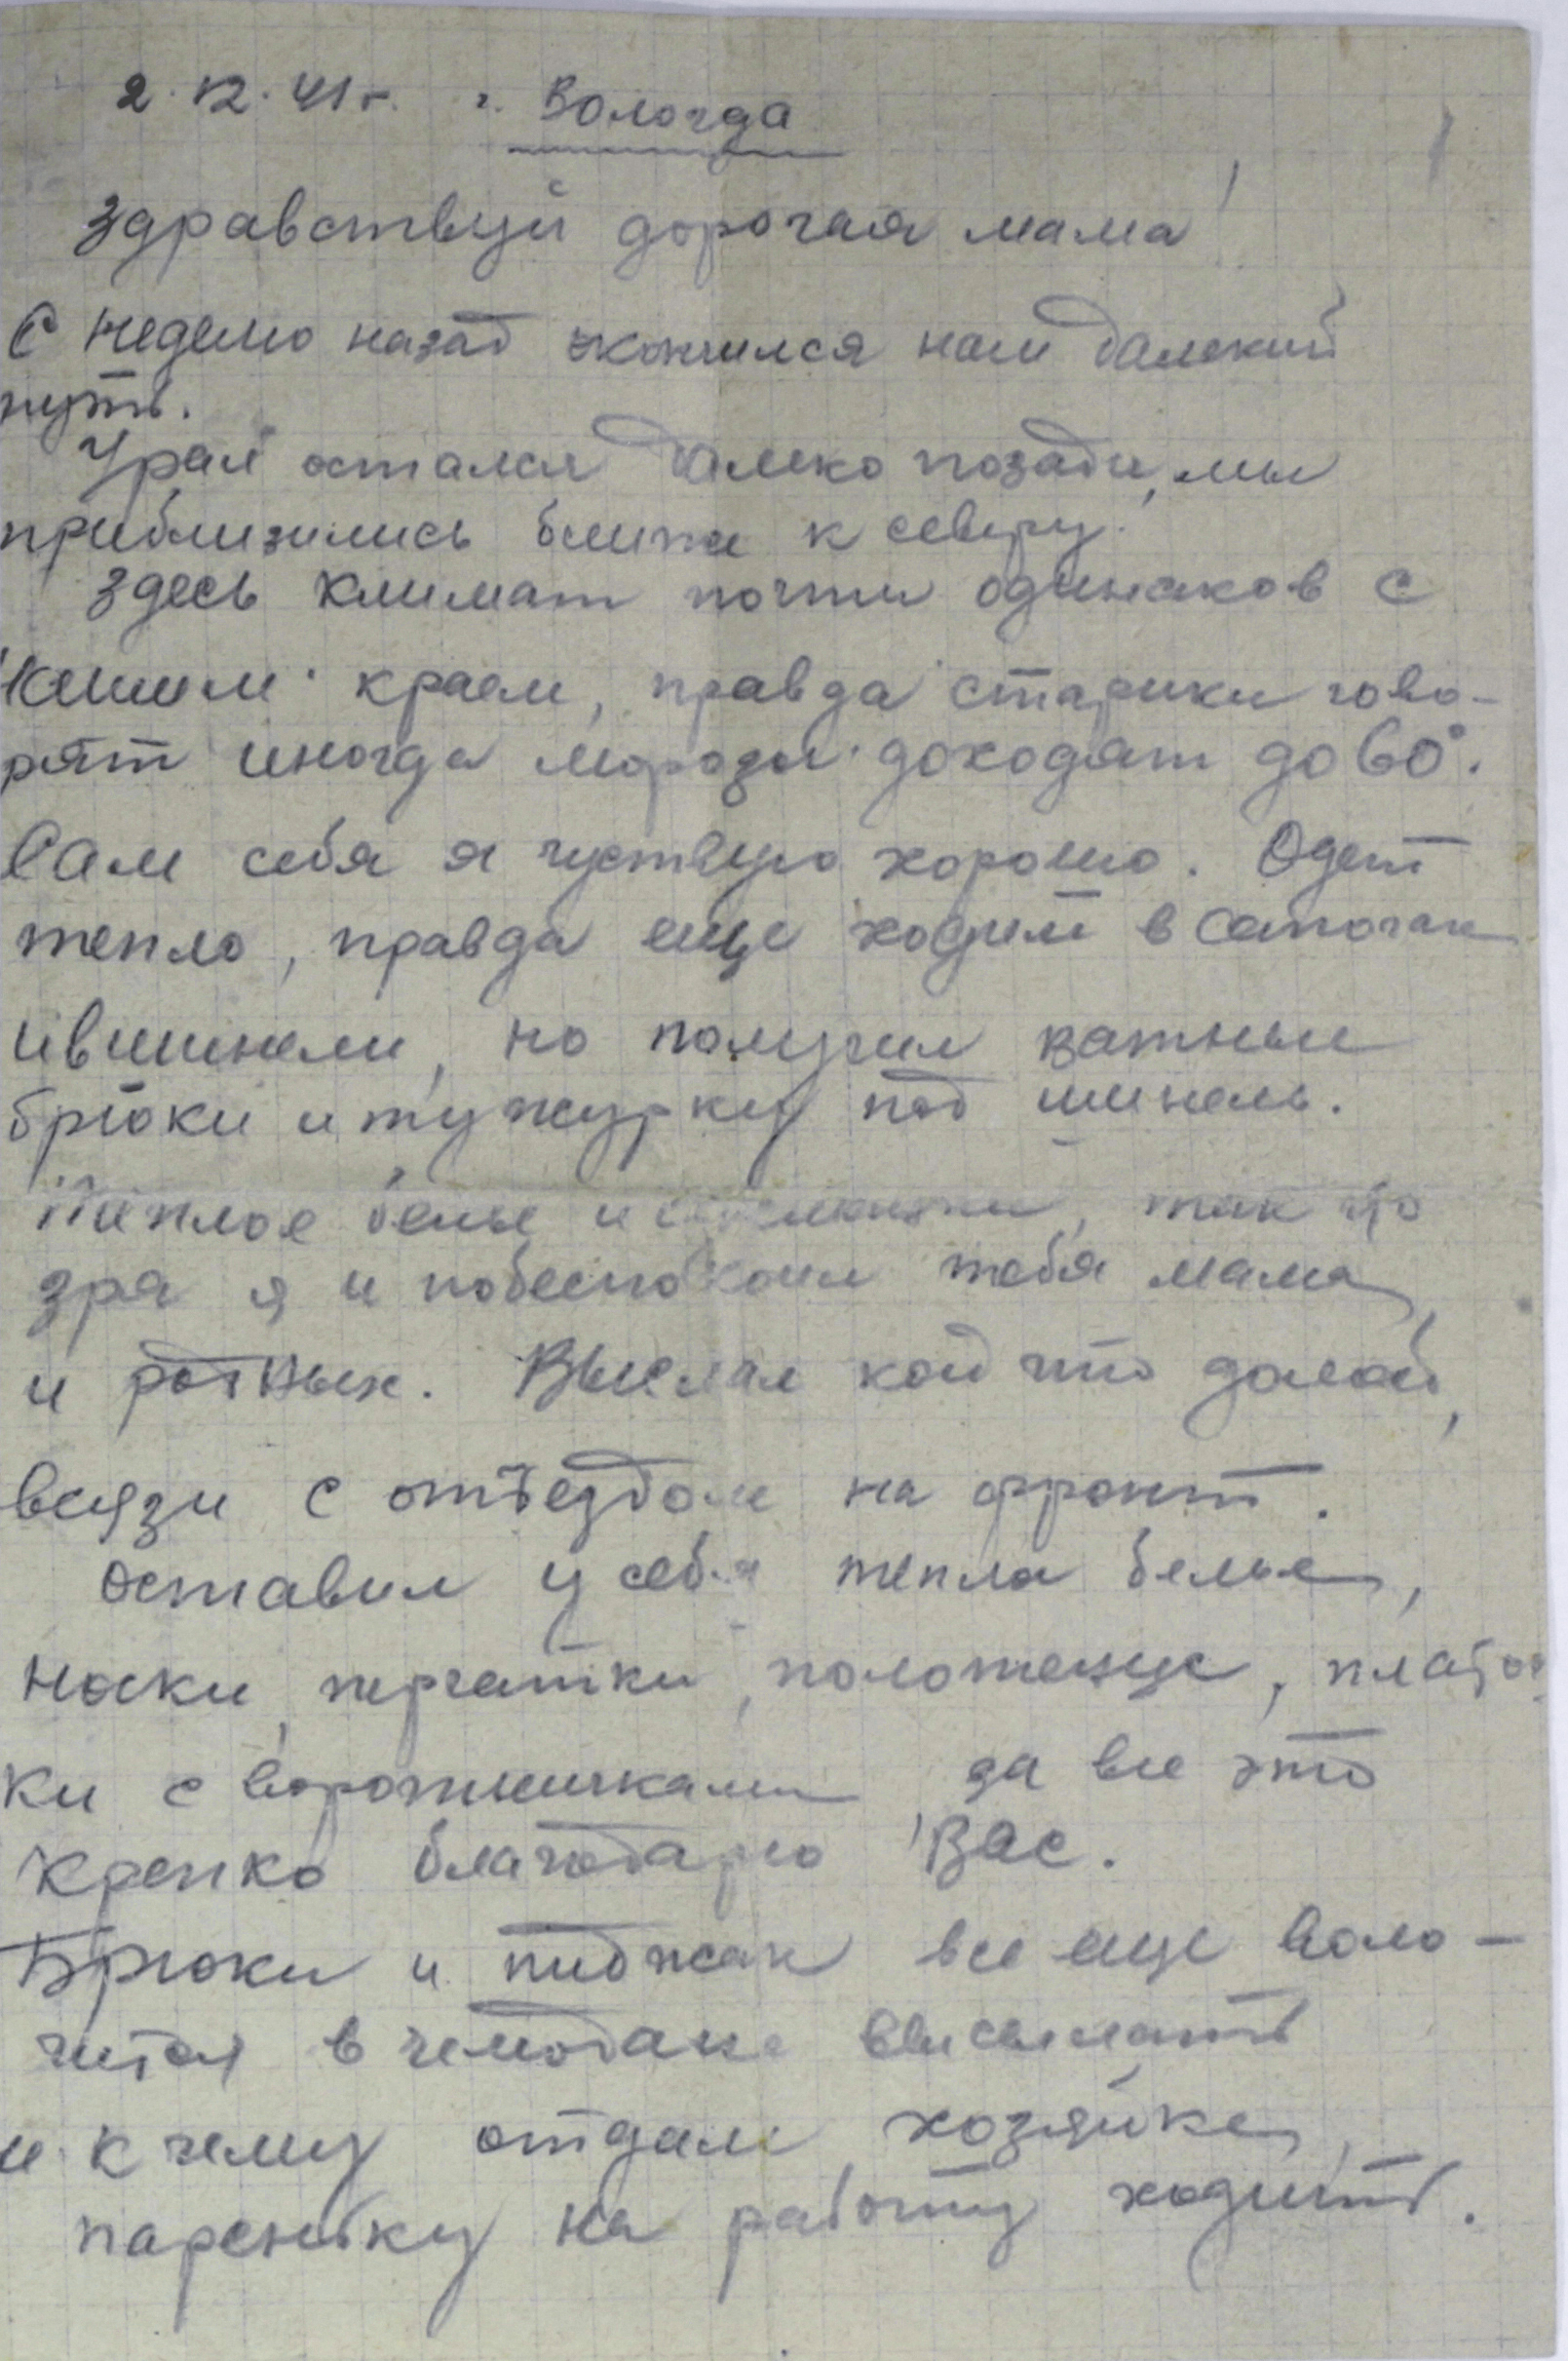 2.12.41 г. г. Вологда
Здравствуй дорогая мама!
С неделю назад кончился наш далекий
путь.
Урал остался далеко позади, мы
приблизились ближе к северу.
Здесь климат почти одинаков с
нашим краем, правда старики гово-
рят иногда морозы доходят до 60°.
Сам себя я чуствую хорошо. Одет
тепло, правда еще ходим в сапогах
и в шинели, но получил ватные
брюки и тужурку под шинель.
Теплое белье и, так что
зря я и побеспокоил тебя мама,
и родных. Выслал кой что домой,
всязи с отъездом на фронт.
Оставил у себя тепло белье,
носки, перчатки, полотенце, плато
ки с воротничками да все это
крепко благодарю Вас.
Брюки и пиджак все еще воло-
чится в чемодане высылать
и к чему отдам хозяйке,
пареньку на работу ходить.